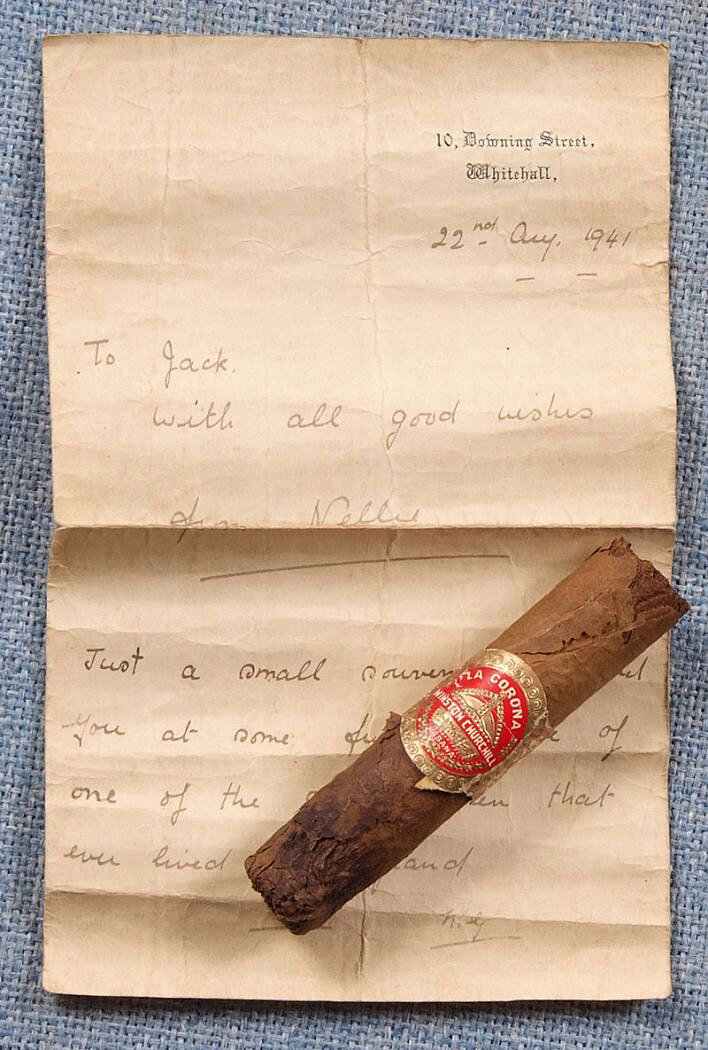 10, Downing Street,
Whitehall,
22nd Aug. 1941
To Jack.
with all good wishes
from Nellie
Just a small
You at some of
one of the that
ever lived
N.G
LA CORONA
WINSTON CHURCHILL